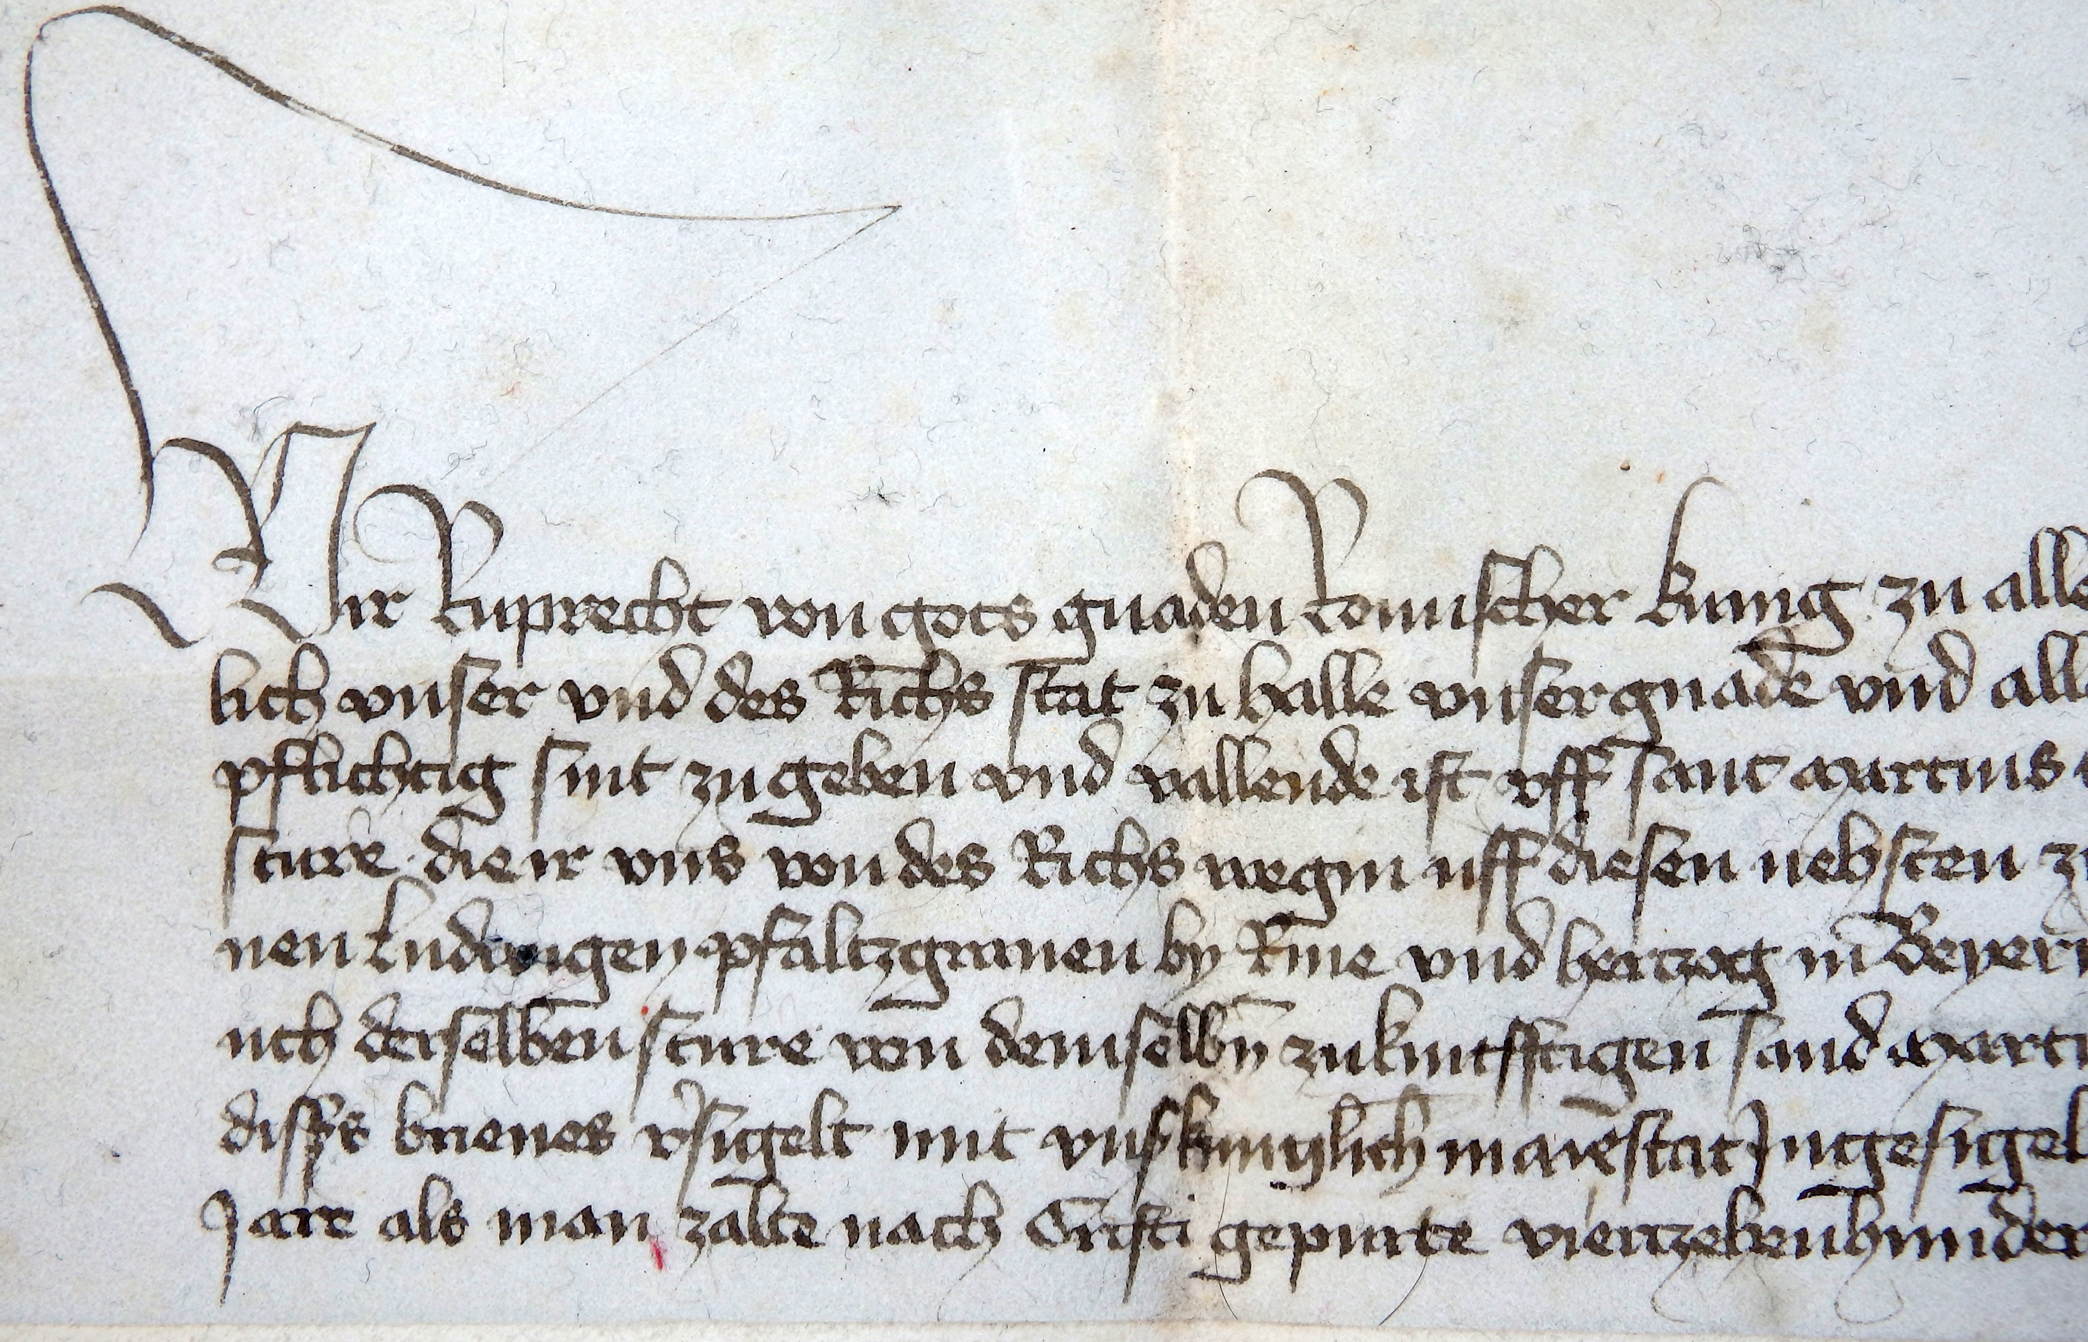 Wir Ruprecht von gots gnaden Romischer kunig zu alle
lich vnser vnd des Richs stat zu halle vnser gnade vnd alle
pflichtig sint zu geben vnd vallende ist vff sant Martins
sture die ir vns von des Richs wegin uff diesen nehsten zu
nen Ludwigen pfaltzgrauen by Rine vnd hertzog in Beyern
uch derselben sture von demselbn zukunfftigen sand Marti
disses brieues v'sigelt mit vns' kuniglich maiestat Ingesigel
Jare als man zalte nach Cristi gepurte viertzehenhunder